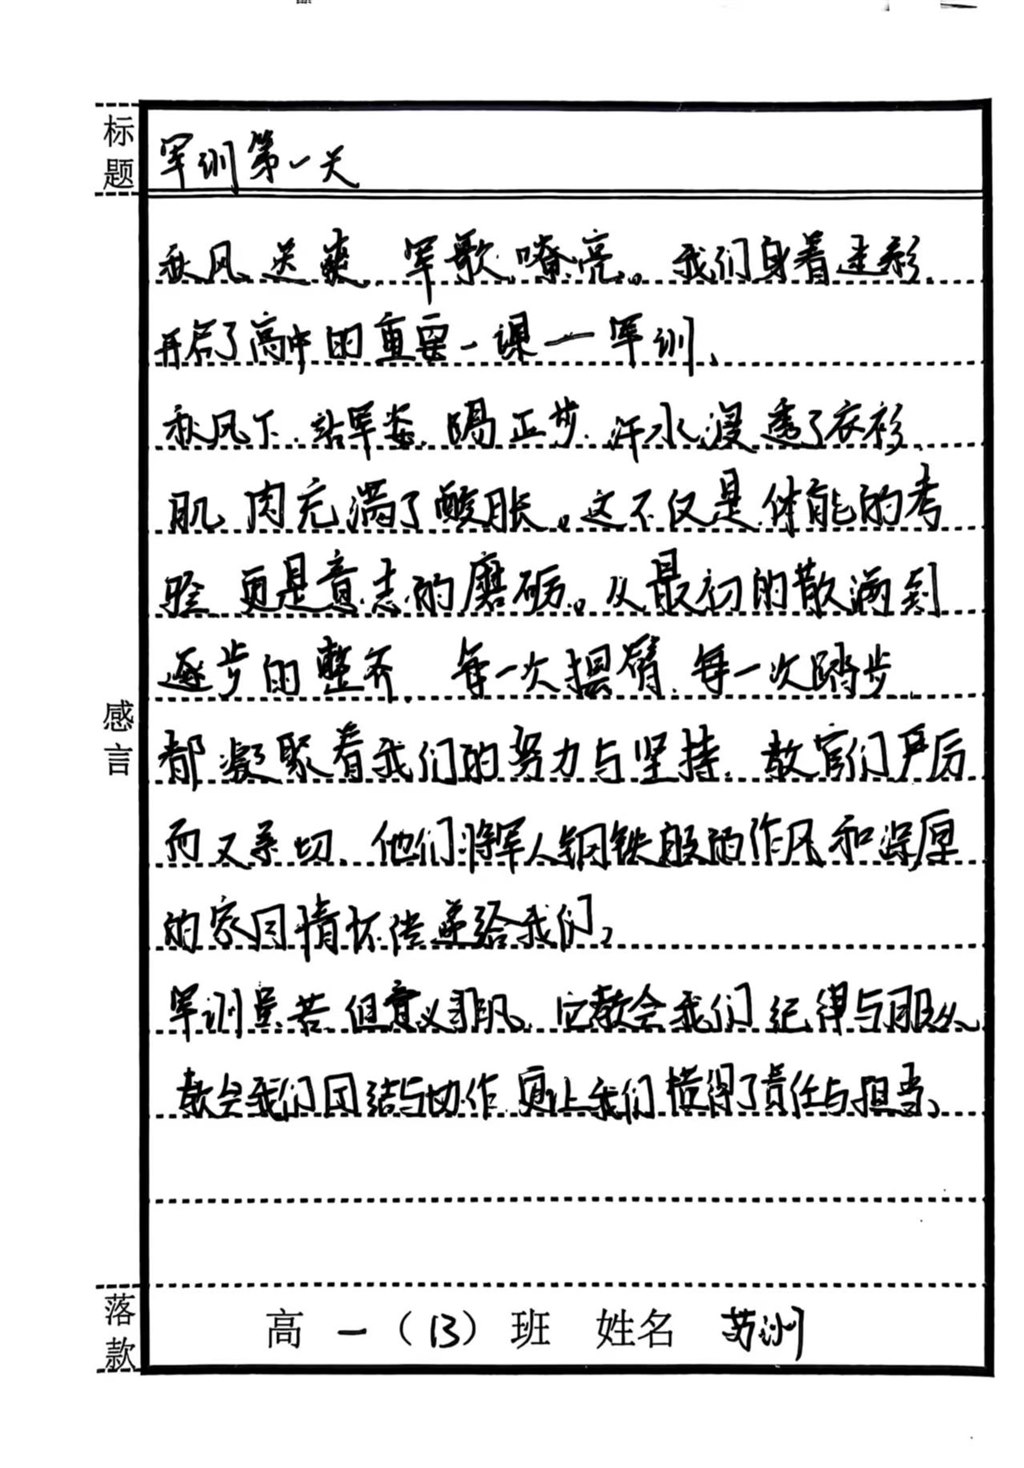 标题
军训第一天
秋风送爽,军歌嘹亮。我们身着迷彩,
开启了高中的重要一课—军训。
秋风下,站军姿,踢正步,汗水浸透了衣衫,
肌肉充满了酸胀。这不仅是体能的考
验,更是意志的磨砺。从最初的散漫到
逐步的整齐,每一次摆臂,每一次踏步,
都凝聚着我们的努力与坚持,教官们严厉
而又亲切,他们将军人钢铁般的作风和深厚
的家国情怀传递给我们。
军训虽苦,但意义非凡。它教会我们纪律与服从
教会我们团结与协作,更让我们懂得了责任与担当。
感言
落款
高一(13)班 姓名 苏洲